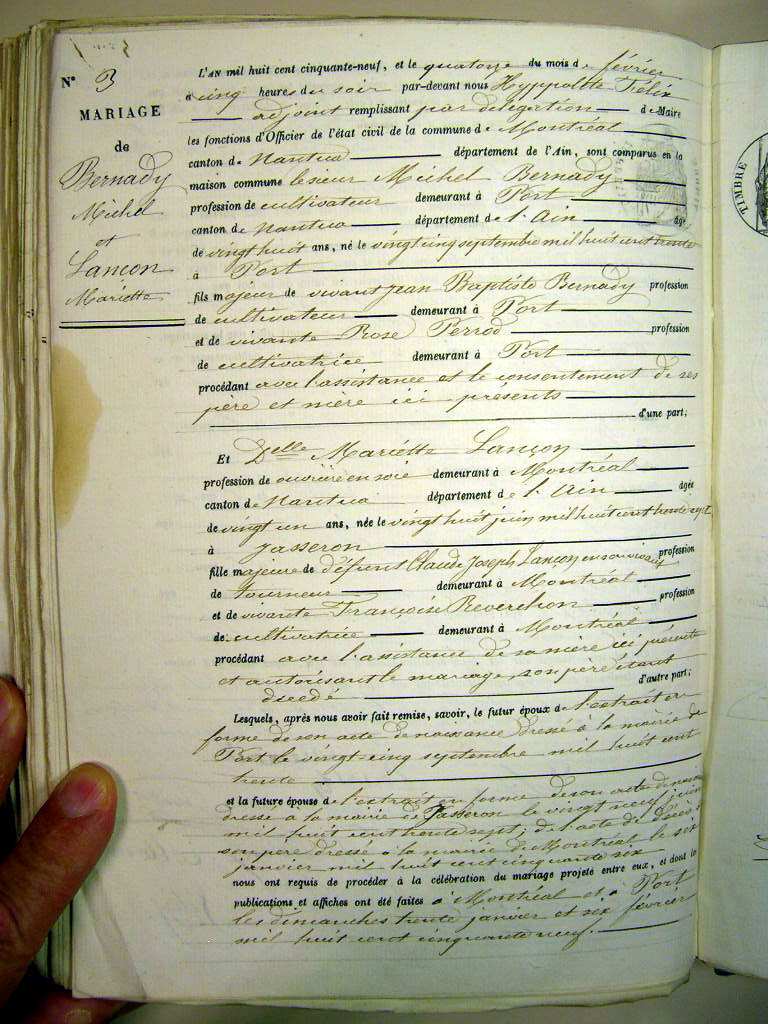 N° 3
MARIAGE
de
Bernady
Michel
et
Lançon
Mariette
L'AN mil huit cent cinquante-neuf, et le quatorze du mois de février
à cinq heures du soir par-devant nous Hyppolite Félix
adjoint remplissant par délégation de Maire
les fonctions d'Officier de l'état civil de la commune de Montréal
canton de Nantua département de l'Ain, sont comparus en la
maison commune le sieur Michel Bernady
profession de cultivateur demeurant à Port
canton de Nantua département de l'Ain âgé
de vingt huit ans, né le vingt cinq septembre mil huit cent trente
à Port
fils majeur de vivant Jean Baptiste Bernady profession
de cultivateur demeurant à Port
et de vivante Rose Perrod profession
de cultivatrice demeurant à Port
procédant avec l'assistance et le consentement de ses
père et mère ici présents
d'une part;
Et Delle Mariette Lançon
profession de ouvrière en soie demeurant à Montréal
canton de Nantua département de l'Ain âgée
de vingt un ans, née le vingt huit juin mil huit cent trente sept
à Jasseron
fille majeure de défunt Claude Joseph Lançon en son vivant profession
de tourneur demeurant à Montréal
et de vivante Françoise Reverchon profession
de cultivatrice demeurant à Montréal
procédant avec l'assistance de sa mère ici présente
et autorisant le mariage, son père étant
décedé d'autre part;
Lesquels, après nous avoir fait remise, savoir, le futur époux de l'extrait en
forme de son acte de naissance dressé à la mairie de
Port le vingt cinq septembre mil huit cent
trente
et la future épouse de l'extrait en forme de son acte de naissance
dressé à la mairie de Jasseron le vingt neuf juin
mil huit cent trente sept; de l'acte de décès de
son père dressé à la mairie de Montréal le six
janvier mil huit cent cinquante six
nous ont requis de procéder à la célébration du mariage projeté entre eux, et dont les
publications et affiches ont été faites à Montréal et à Port
les dimanches trente janvier et six février
mil huit cent cinquante neuf.
TIMBRE